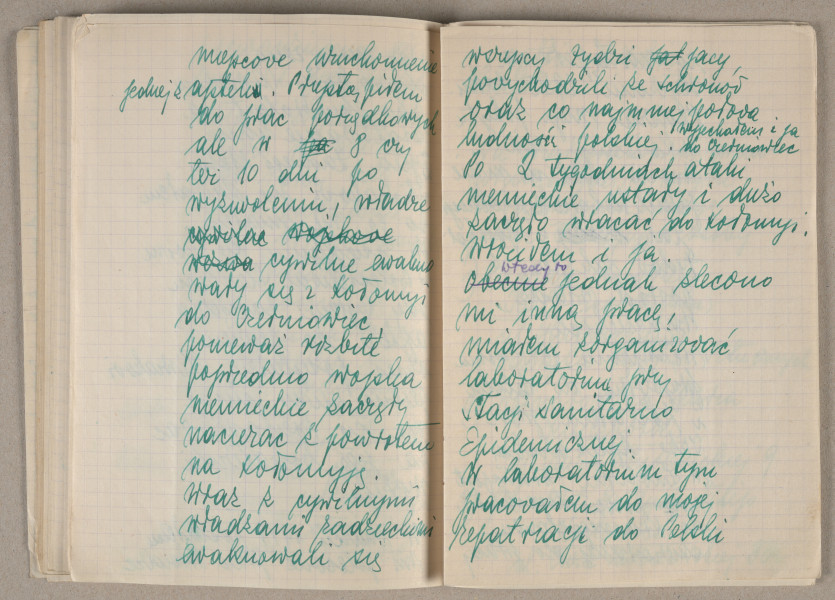 miejscowe uruchomienie
jednej z apteki. Przystąpiłem
do prac porządkowych
ale w 8 czy
też 10 dni po
wyzwoleniu, władze
cywilne wojskowe
cywilne ewakuo
wały się z Kołomyji
do Czerniowiec,
ponieważ rozbite
poprzednio wojska
niemieckie zaczęły
nacierać z powrotem
na Kołomyję.
Wraz z cywilnymi
władzami radzieckimi
ewakuowali się
wszyscy żydzi jacy
powychodzili ze schronów
oraz co najmniej połowa
ludności polskiej. Wyjechałem i ja
do Czerniowiec
Po 2 tygodniach ataki
niemieckie ustały i dużo
zaczęło wracać do Kołomyji.
Wróciłem i ja.
wtedy to
obecnie jednak zlecono
mi inną pracę,
miałem zorganizować
laboratorium przy
Stacji Sanitarno
Epidemicznej.
W laboratorium tym
pracowałem do mojej
repatriacji do Polski